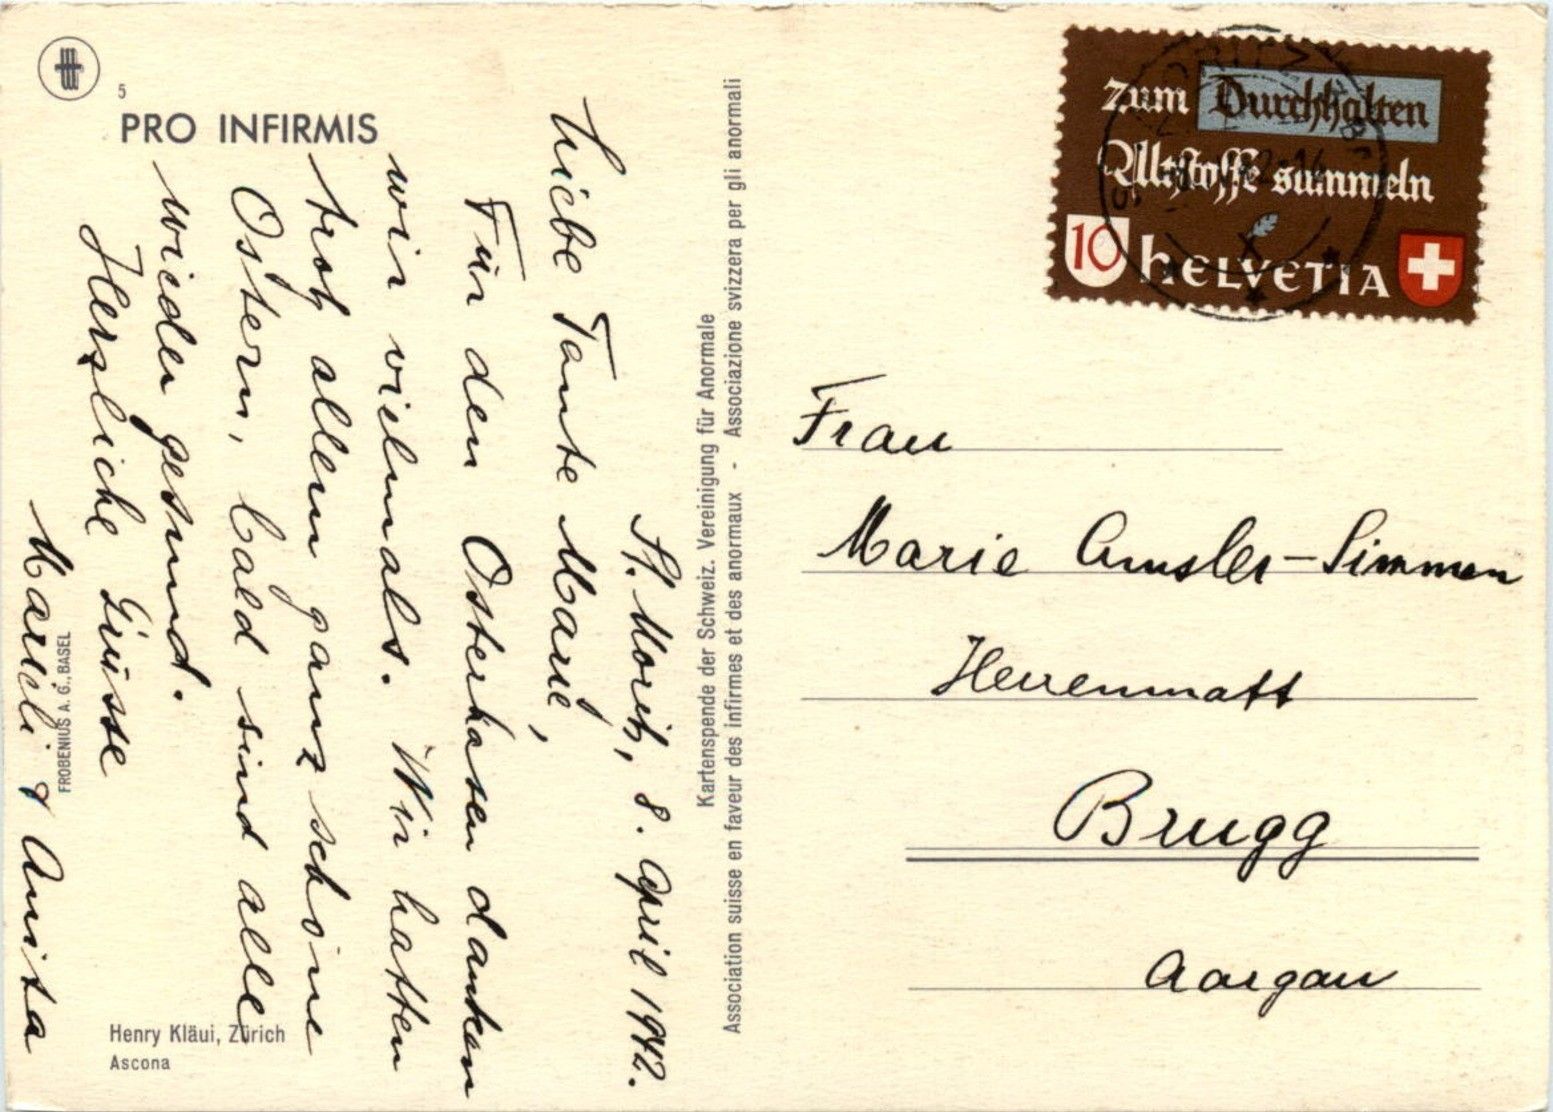 5
PRO INFIRMIS
St. Moritz, 8. April 1942.
Liebe Tante Marie,
Für den Osterhasen danken
wir vielmals. Wir hatten
trotz allem ganz schöne
Ostern, bald sind alle
wieder gesund.
Herzliche Grüsse
Mareili & Anita
FROBENIUS A. G., BASEL
Henry Kläui, Zürich
Ascona
Kartenspende der Schweiz. Vereinigung für Anormale
Association suisse en faveur des infirmes et des anormaux - Associazione svizzera per gli anormali
Zum Durchhalten
Altstoffe sammeln
10 HELVETIA
Frau
Marie Amsler-Simmen
Herrenmatt
Brugg
Aargau